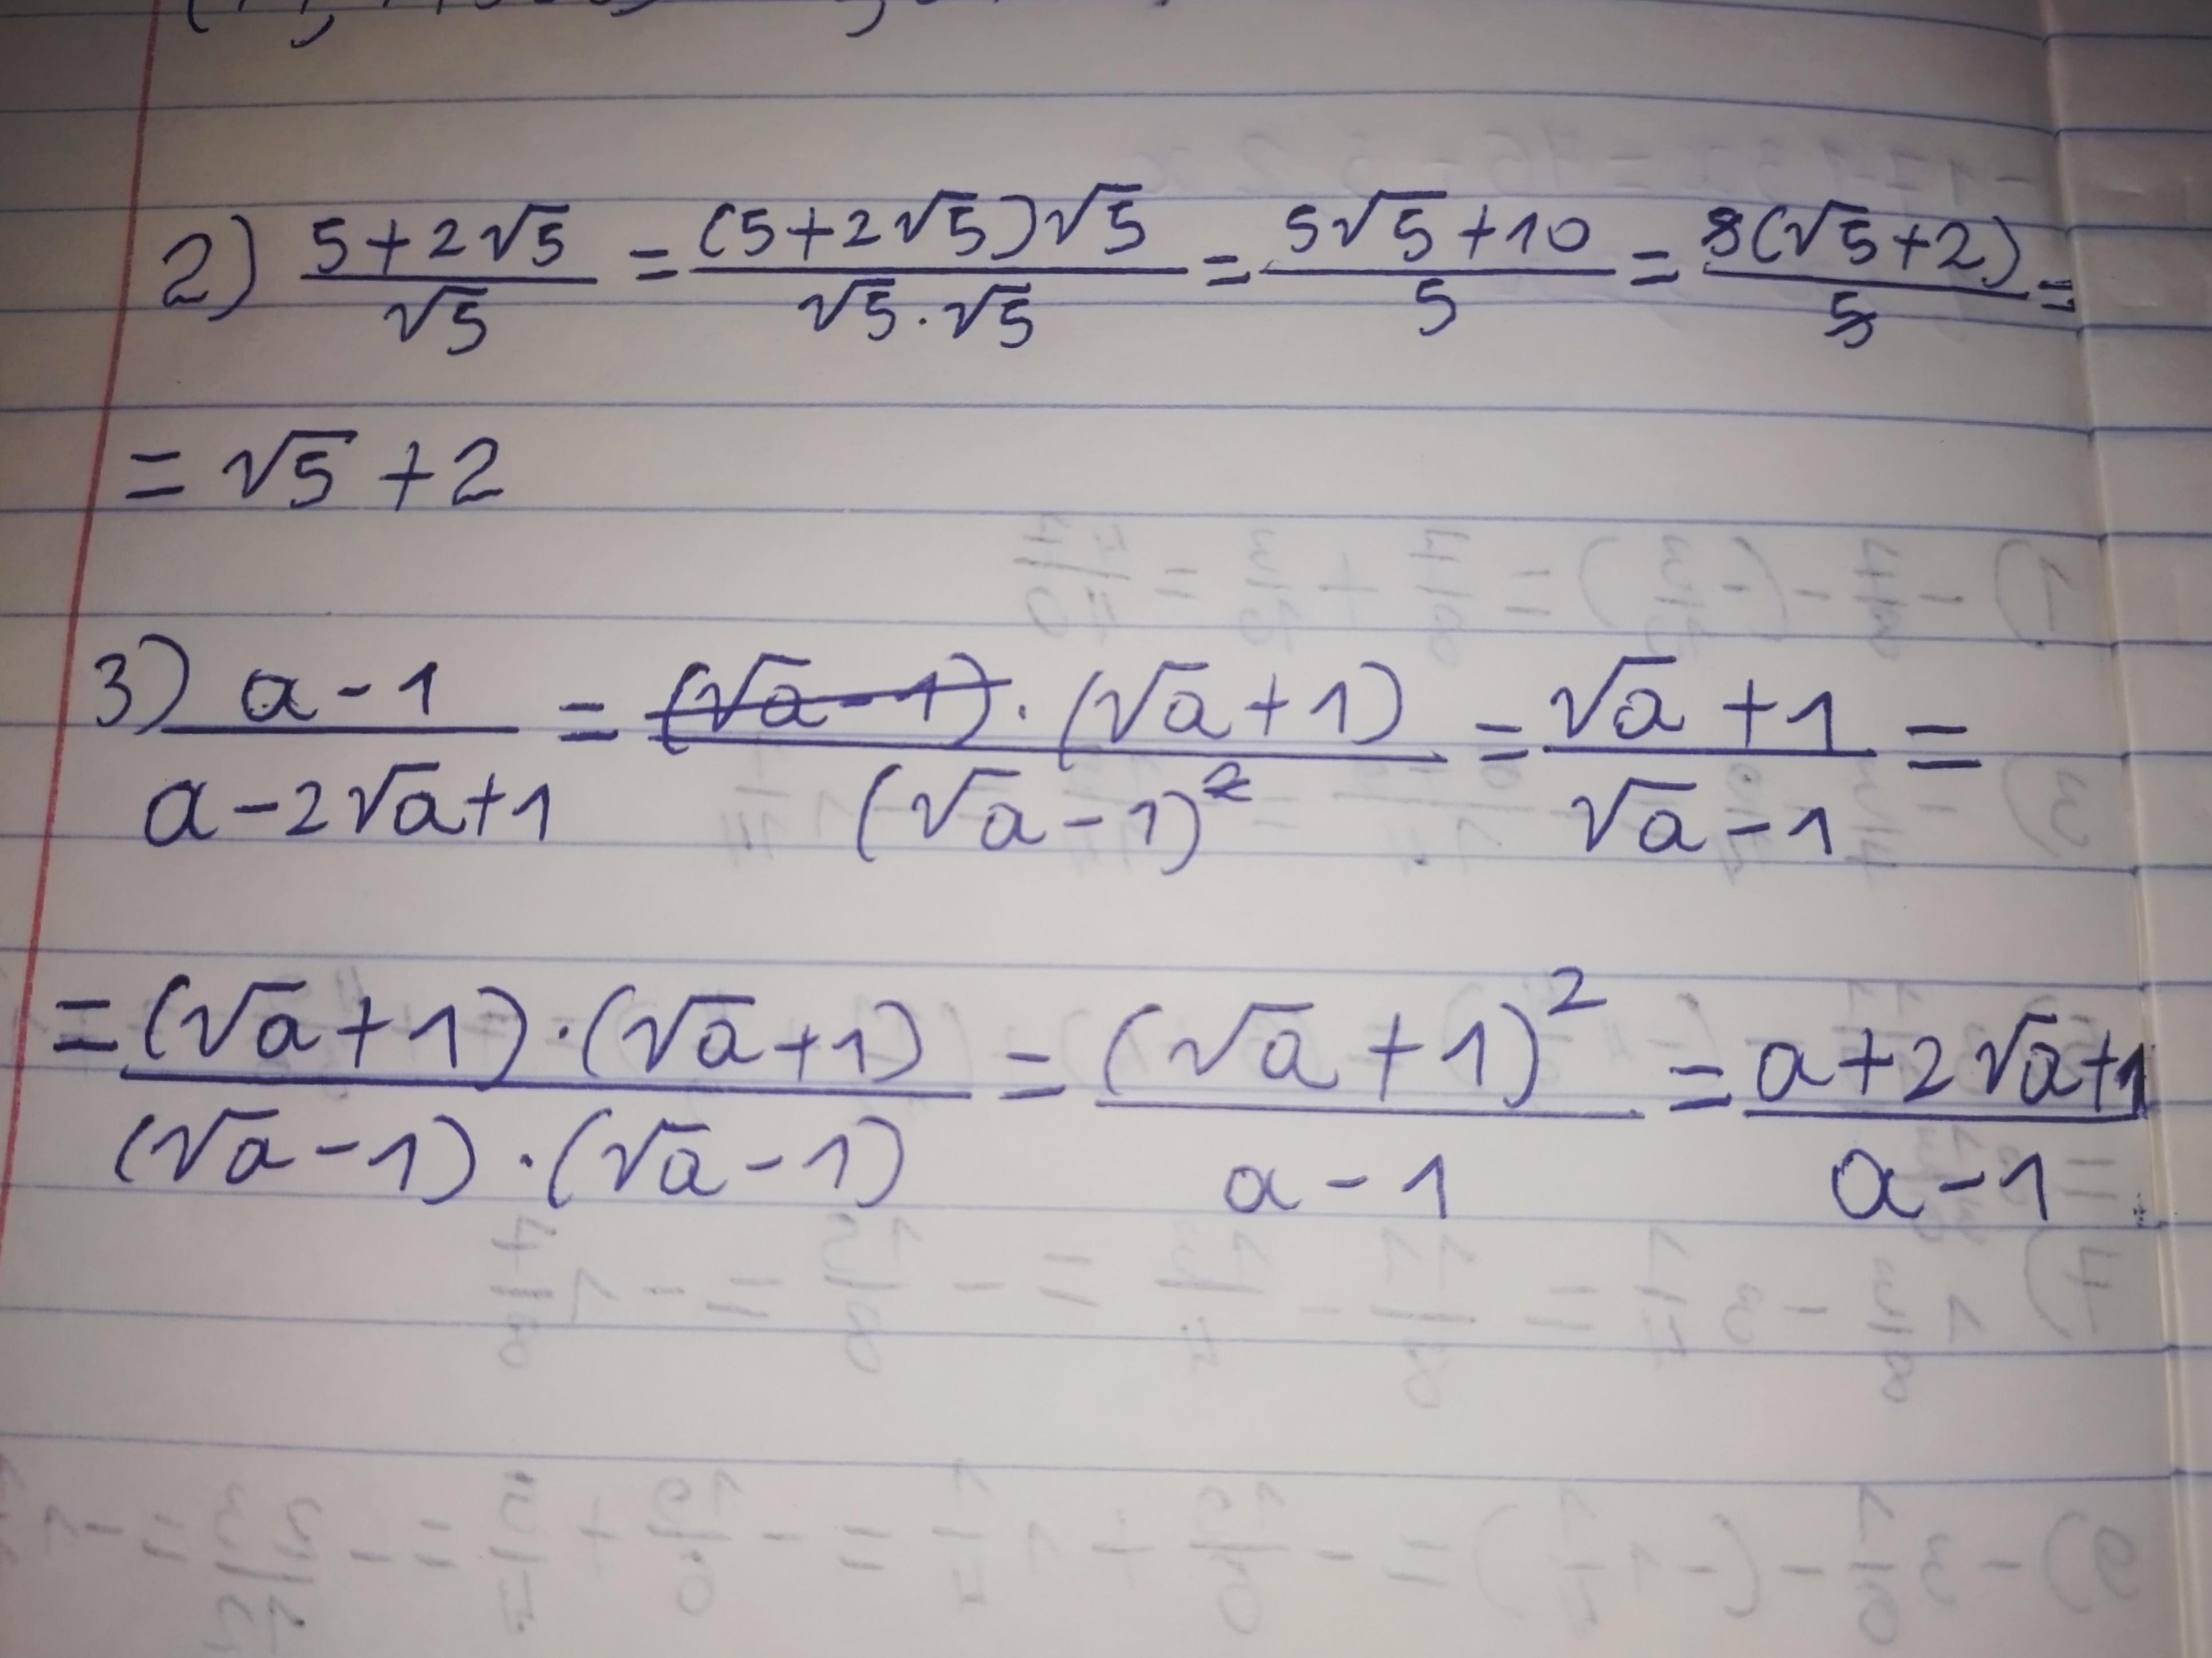 2) (5+2√5)/√5 = ((5+2√5)√5)/(√5·√5) = (5√5+10)/5 = (5(√5+2))/5 =
= √5 + 2
3) (a-1)/(a-2√a+1) = ((√a-1)·(√a+1))/(√a-1)² = (√a+1)/(√a-1) =
= ((√a+1)·(√a+1))/((√a-1)·(√a-1)) = (√a+1)²/(a-1) = (a+2√a+1)/(a-1)